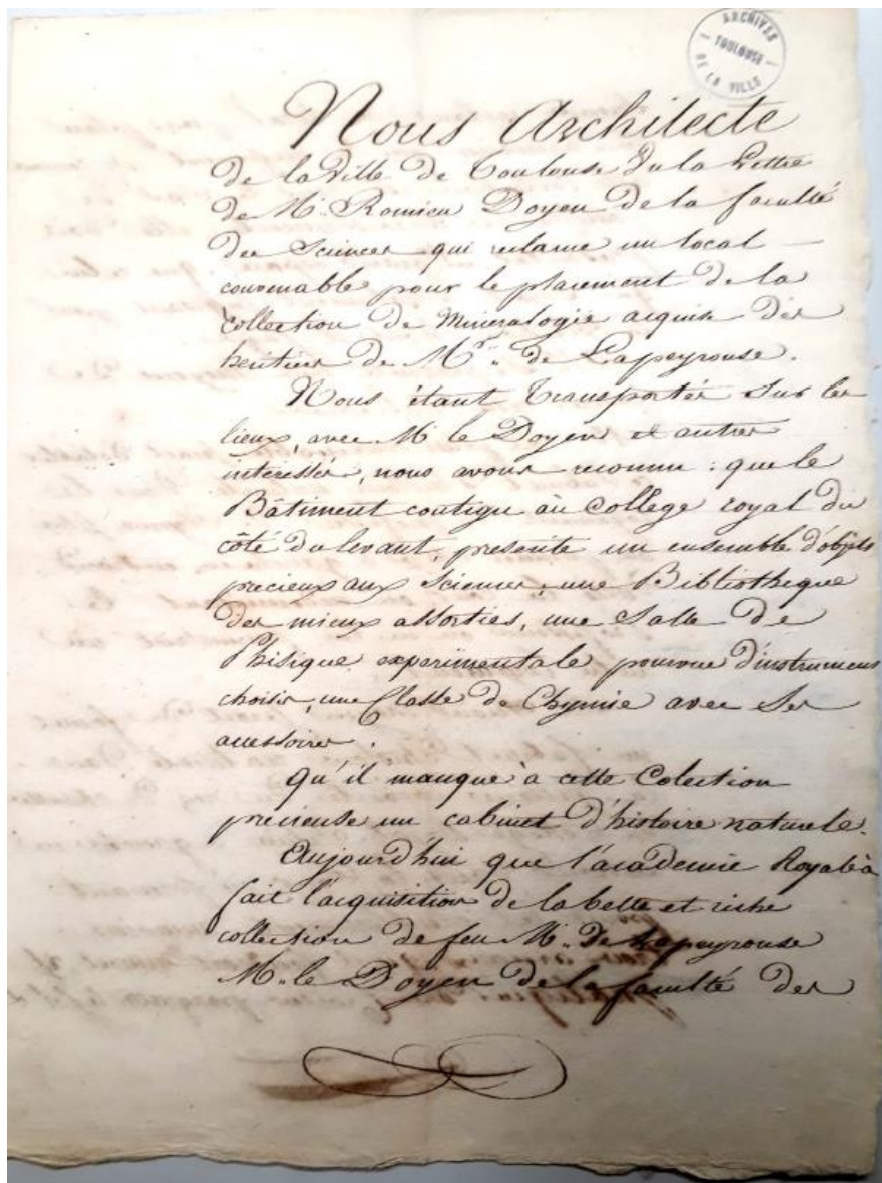 ARCHIVES
TOULOUSE
DE LA VILLE
Nous Architecte
De la Ville De Toulouse Vu la Lettre
De Mr. Romieu Doyen De la faculté
Des Sciences qui reclame un local —
convenable pour le placement De la
Collection De Mineralogie acquise Des
heritiers De Mr. De Lapeyrouse.
Nous étant Transportés Sur les
lieux, avec Mr le Doyen et autres
interessés, nous avons reconnu : que le
Bâtiment contigu au College royal Du
côté Du levant, presente un ensemble d'objets
precieux aux Sciences, une Bibliotheque
Des mieux assorties, une Salle De
Phisique experimentale pourvue D'instrumens
choisis, une Classe De Chymie avec Ses
accessoires.
Qu'il manque à cette Colection
precieuse un cabinet d'histoire naturele.
Aujourd'hui que l'academie Royale à
fait l'acquisition De la belle et riche
collection De feu Mr. De Lapeyrouse
Mr. le Doyen De la faculté Des